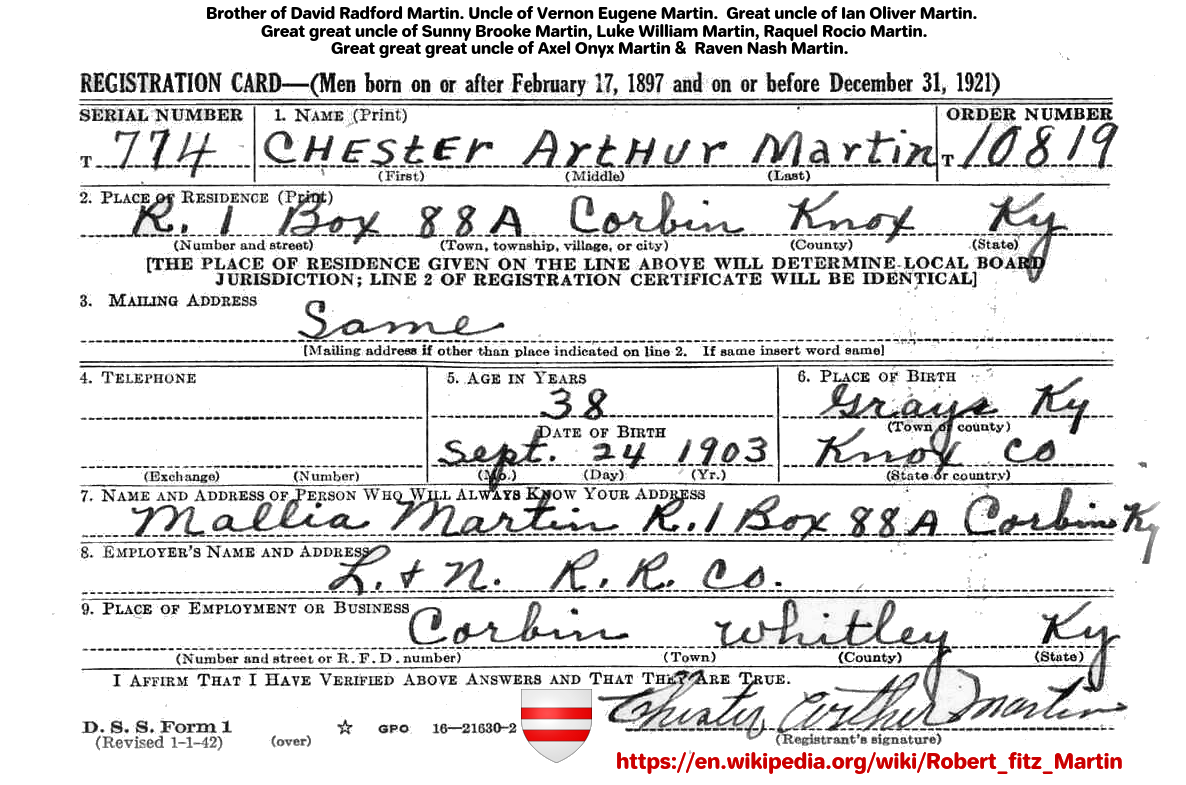 Brother of David Radford Martin. Uncle of Vernon Eugene Martin. Great uncle of Ian Oliver Martin.
Great great uncle of Sunny Brooke Martin, Luke William Martin, Raquel Rocio Martin.
Great great great uncle of Axel Onyx Martin & Raven Nash Martin.
REGISTRATION CARD—(Men born on or after February 17, 1897 and on or before December 31, 1921)
SERIAL NUMBER 1. NAME (Print) ORDER NUMBER
T 774 CHEStEr ArtHUr Martin T 10819
(First) (Middle) (Last)
2. PLACE OF RESIDENCE (Print)
R. 1 Box 88A Corbin Knox Ky
(Number and street) (Town, township, village, or city) (County) (State)
[THE PLACE OF RESIDENCE GIVEN ON THE LINE ABOVE WILL DETERMINE LOCAL BOARD
JURISDICTION; LINE 2 OF REGISTRATION CERTIFICATE WILL BE IDENTICAL]
3. MAILING ADDRESS
Same
[Mailing address if other than place indicated on line 2. If same insert word same]
4. TELEPHONE 5. AGE IN YEARS 6. PLACE OF BIRTH
38 Grays Ky
DATE OF BIRTH (Town or county)
Sept. 24 1903 Knox Co
(Exchange) (Number) (Mo.) (Day) (Yr.) (State or country)
7. NAME AND ADDRESS OF PERSON WHO WILL ALWAYS KNOW YOUR ADDRESS
Mallia Martin R.1 Box 88A Corbin Ky
8. EMPLOYER'S NAME AND ADDRESS
L. & N. R. R. Co.
9. PLACE OF EMPLOYMENT OR BUSINESS
Corbin Whitley Ky
(Number and street or R. F. D. number) (Town) (County) (State)
I AFFIRM THAT I HAVE VERIFIED ABOVE ANSWERS AND THAT THEY ARE TRUE.
Chester Arthur Martin
D. S. S. Form 1
(Revised 1-1-42) (over) ☆ GPO 16—21630-2 (Registrant's signature)
https://en.wikipedia.org/wiki/Robert_fitz_Martin